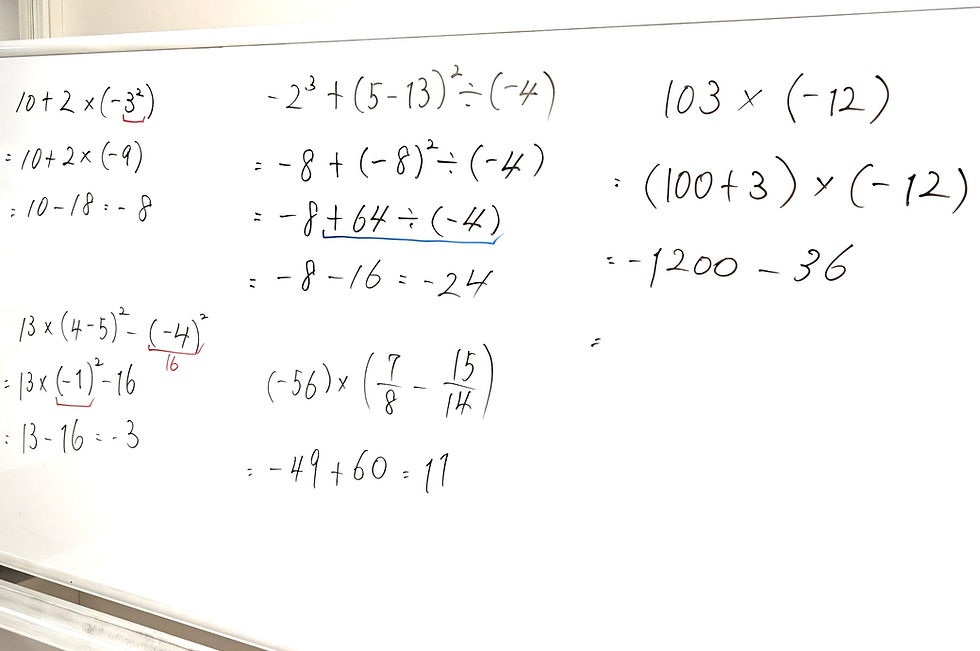 10+2×(-3²)
=10+2×(-9)
=10-18=-8
13×(4-5)²-(-4)²
16
=13×(-1)²-16
=13-16=-3
-2³+(5-13)²÷(-4)
=-8+(-8)²÷(-4)
=-8+64÷(-4)
=-8-16=-24
(-56)×(7/8-15/14)
=-49+60=11
103×(-12)
=(100+3)×(-12)
=-1200-36
=